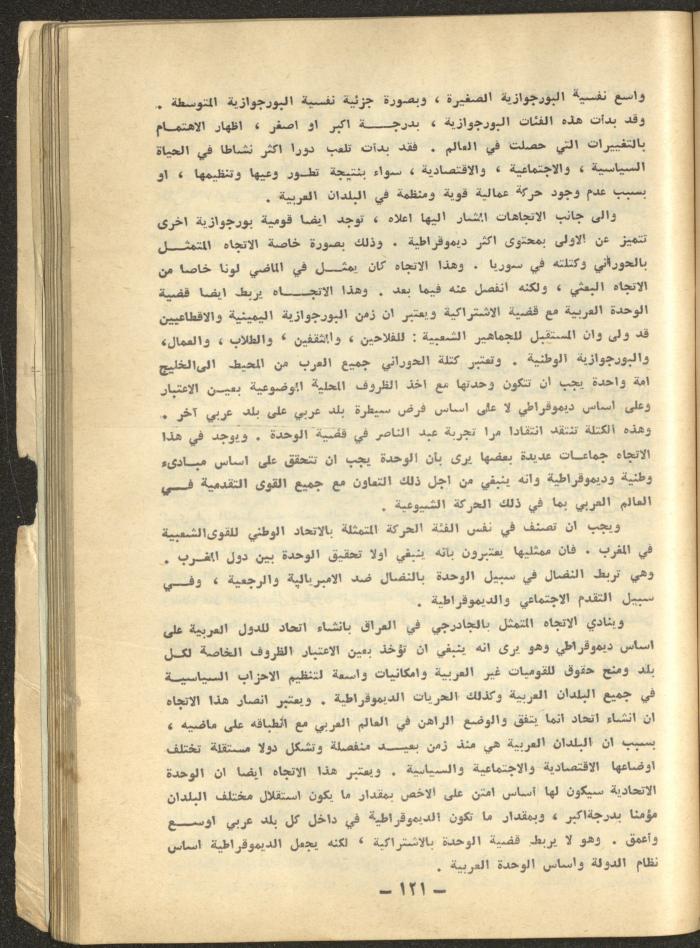 واسع نفسية البورجوازية الصغيرة ، وبصورة جزئية نفسية البورجوازية المتوسطة .
وقد بدأت هذه الفئات البورجوازية ، بدرجـــة اكبر او اصغر ، اظهار الاهتمـام
بالتغييرات التي حصلت في العالم . فقد بدأت تلعب دورا اكثر نشاطا في الحياة
السياسية ، والاجتماعية ، والاقتصادية ، سواء بنتيجة تطـور وعيها وتنظيمها ، او
بسبب عدم وجود حركة عمالية قوية ومنظمة في البلدان العربية .
والى جانب الاتجاهات المشار اليها اعلاه ، توجد ايضا قومية بورجوازية اخرى
تتميز عن الاولى بمحتوى اكثر ديموقراطية . وذلك بصورة خاصة الاتجاه المتمثـل
بالحوراني وكتلته في سوريا . وهذا الاتجاه كان يمثــل في الماضي لونا خاصا من
الاتجاه البعثي ، ولكنه انفصل عنه فيما بعد . وهذا الاتجــاه يربط ايضا قضية
الوحدة العربية مع قضية الاشتراكية ويعتبر ان زمن البورجوازية اليمينية والاقطاعيين
قد ولى وان المستقبل للجماهير الشعبية : للفلاحين ، والمثقفين ، والطلاب ، والعمال،
والبورجوازية الوطنية . وتعتبر كتلة الحوراني جميع العرب من المحيط الىالخليج
امة واحدة يجب ان تتكون وحدتها مع اخذ الظروف المحلية الموضوعية بعيـن الاعتبار
وعلى اساس ديموقراطي لا على اساس فرض سيطرة بلد عربي على بلد عربي آخر .
وهذه الكتلة تنتقد انتقادا مرا تجربة عبد الناصر في قضية الوحدة . ويوجد في هذا
الاتجاه جماعـات عديدة بعضها يرى بان الوحدة يجب ان تتحقق على اساس مبـادىء
وطنية وديموقراطية وانه ينبغي من اجل ذلك التعاون مع جميع القوى التقدمية فــي
العالم العربي بما في ذلك الحركة الشيوعية .
ويجب ان تصنف في نفس الفئة الحركة المتمثلة بالاتحاد الوطني للقوىالشعبية
في المغرب . فان ممثليها يعتبرون بانه ينبغي اولا تحقيق الوحدة بين دول المغـرب .
وهي تربط النضال في سبيل الوحدة بالنضال ضد الامبريالية والرجعية ، وفــي
سبيل التقدم الاجتماعي والديموقراطية .
وينادي الاتجاه المتمثل بالجادرجي في العراق بانشاء اتحاد للدول العربية على
اساس ديموقراطي وهو يرى انه ينبغي ان تؤخذ بعين الاعتبار الظروف الخاصة لكـل
بلد ومنح حقوق للقوميات غير العربية وامكانيات واسعة لتنظيم الاحزاب السياسيـة
في جميع البلدان العربية وكذلك الحريات الديموقراطية . ويعتبر انصار هذا الاتجاه
ان انشاء اتحاد انما يتفق والوضع الراهن في العالم العربي مع انطباقه على ماضيه ،
بسبب ان البلدان العربية هي منذ زمن بعيـد منفصلة وتشكل دولا مستقلة تختلف
اوضاعها الاقتصادية والاجتماعية والسياسية . ويعتبر هذا الاتجاه ايضا ان الوحدة
الاتحادية سيكون لها اساس امتن على الاخص بمقدار ما يكون استقلال مختلف البلدان
مؤمنا بدرجةاكبر ، وبمقدار ما تكون الديموقراطية في داخل كل بلد عربي اوســع
وأعمق . وهو لا يربط قضية الوحدة بالاشتراكية ، لكنه يجعل الديموقراطية اساس
نظام الدولة واساس الوحدة العربية .
– ١٢١ –